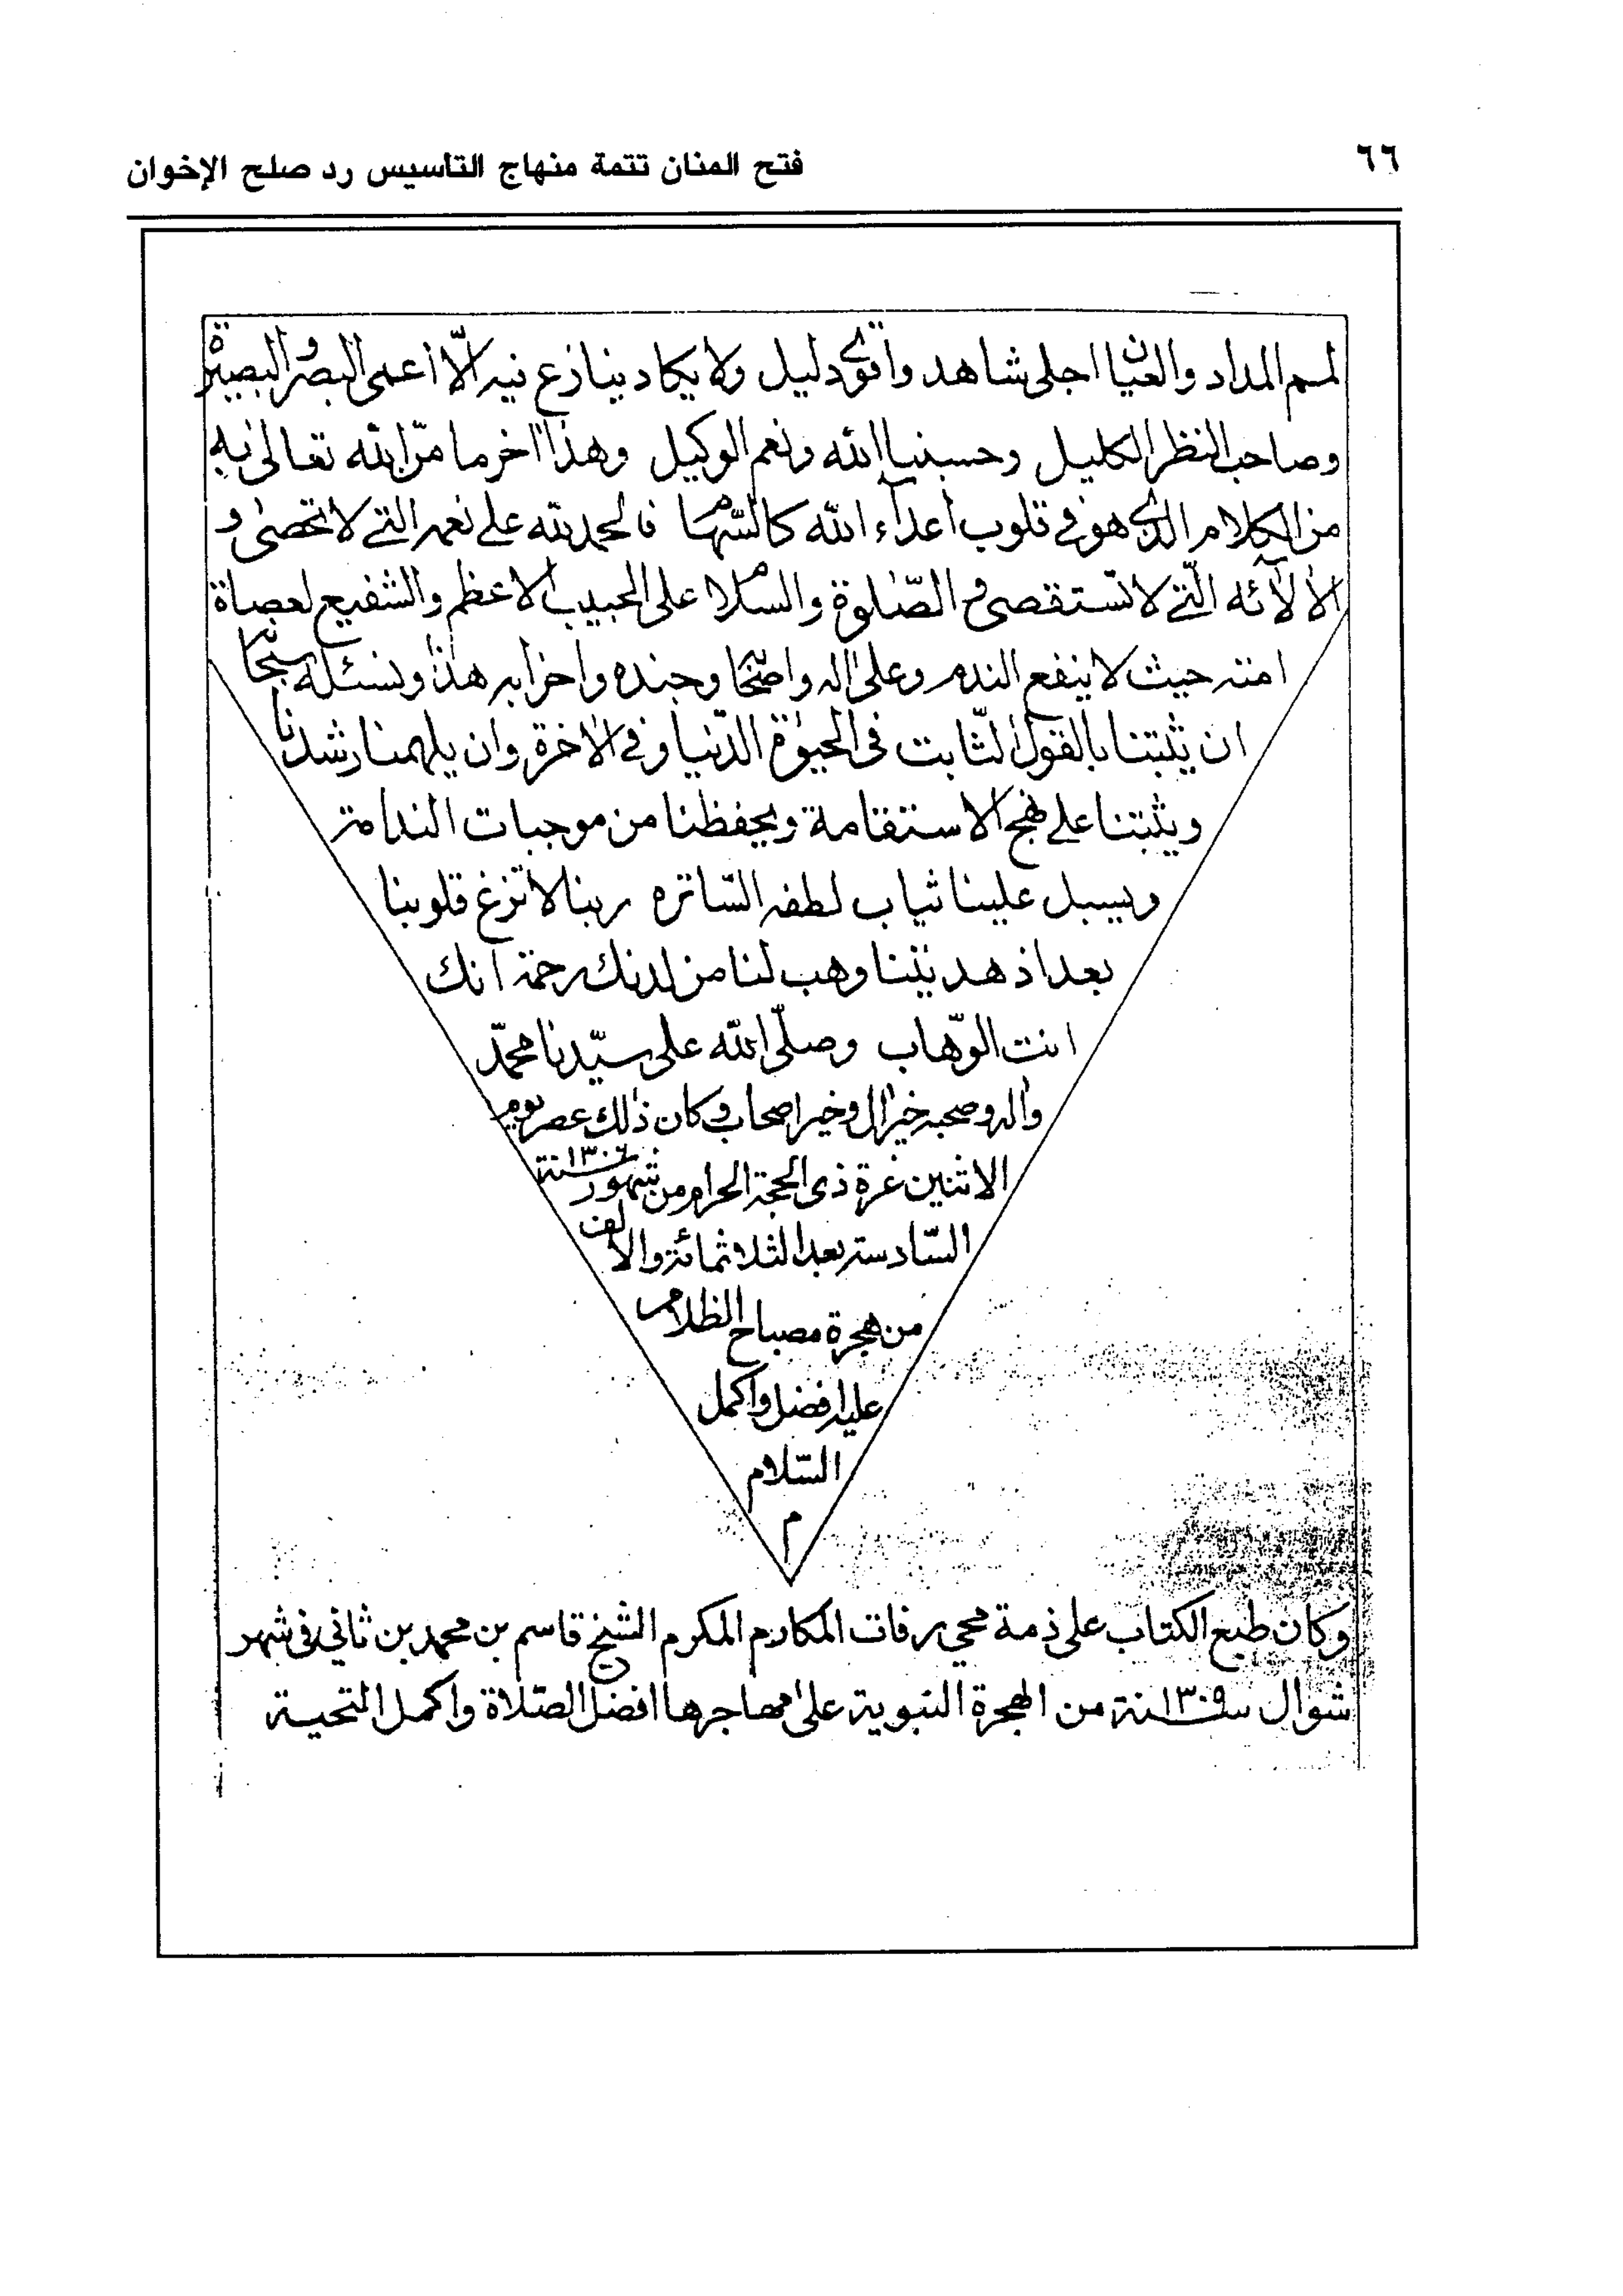 ٦٦
فتح المنان تتمة منهاج التأسيس رد صلح الإخوان
المداد والعيان اجلى شاهد واقوى دليل ولا يكاد ينازع فيه الّا أعمى البصر والبصيرة
وصاحب النظر الكليل وحسبنا الله ونعم الوكيل وهذا اخر ما منّ الله تعالى به
من الكلام الذي هو في قلوب أعدآء الله كالسّهام فالحمد لله على نعمه التي لا تحصى و
الألآئه الّتي لا تستقصى والصّلوة والسّلام على الحبيب الاعظم والشفيع لعصاة
امته حيث لا ينفع الندم وعلى اله واصحابه وجنده واحزابه هذا ونسئله سبحانه
ان يثبتنا بالقول الثّابت في الحيوة الدّنيا وفي الاخرة وان يلهمنا رشدنا
ويثبتنا على نهج الاستقامة ويحفظنا من موجبات الندامة
ويسبل علينا ثياب لطفه السّاتره ربنا لا تزغ قلوبنا
بعد اذ هديتنا وهب لنا من لدنك رحمة انك
انت الوّهاب وصلّى الله على سيّدنا محمّد
واله وصحبه خير ال وخير اصحاب وكان ذلك عصر يوم
الاثنين غرة ذى الحجة الحرام من شهور سنة ١٣٠٦
السّادسة بعد الثلاثمائة والالف
من هجرة مصباح الظلام
عليه افضل واكمل
السّلام
م
وكان طبع الكتاب على ذمة محيي رفات المكارم المكرم الشيخ قاسم بن محمد بن ثاني في شهر
شوال سنة ١٣٠٩ من الهجرة النبوية على مهاجرها افضل الصّلاة واكمل التحية